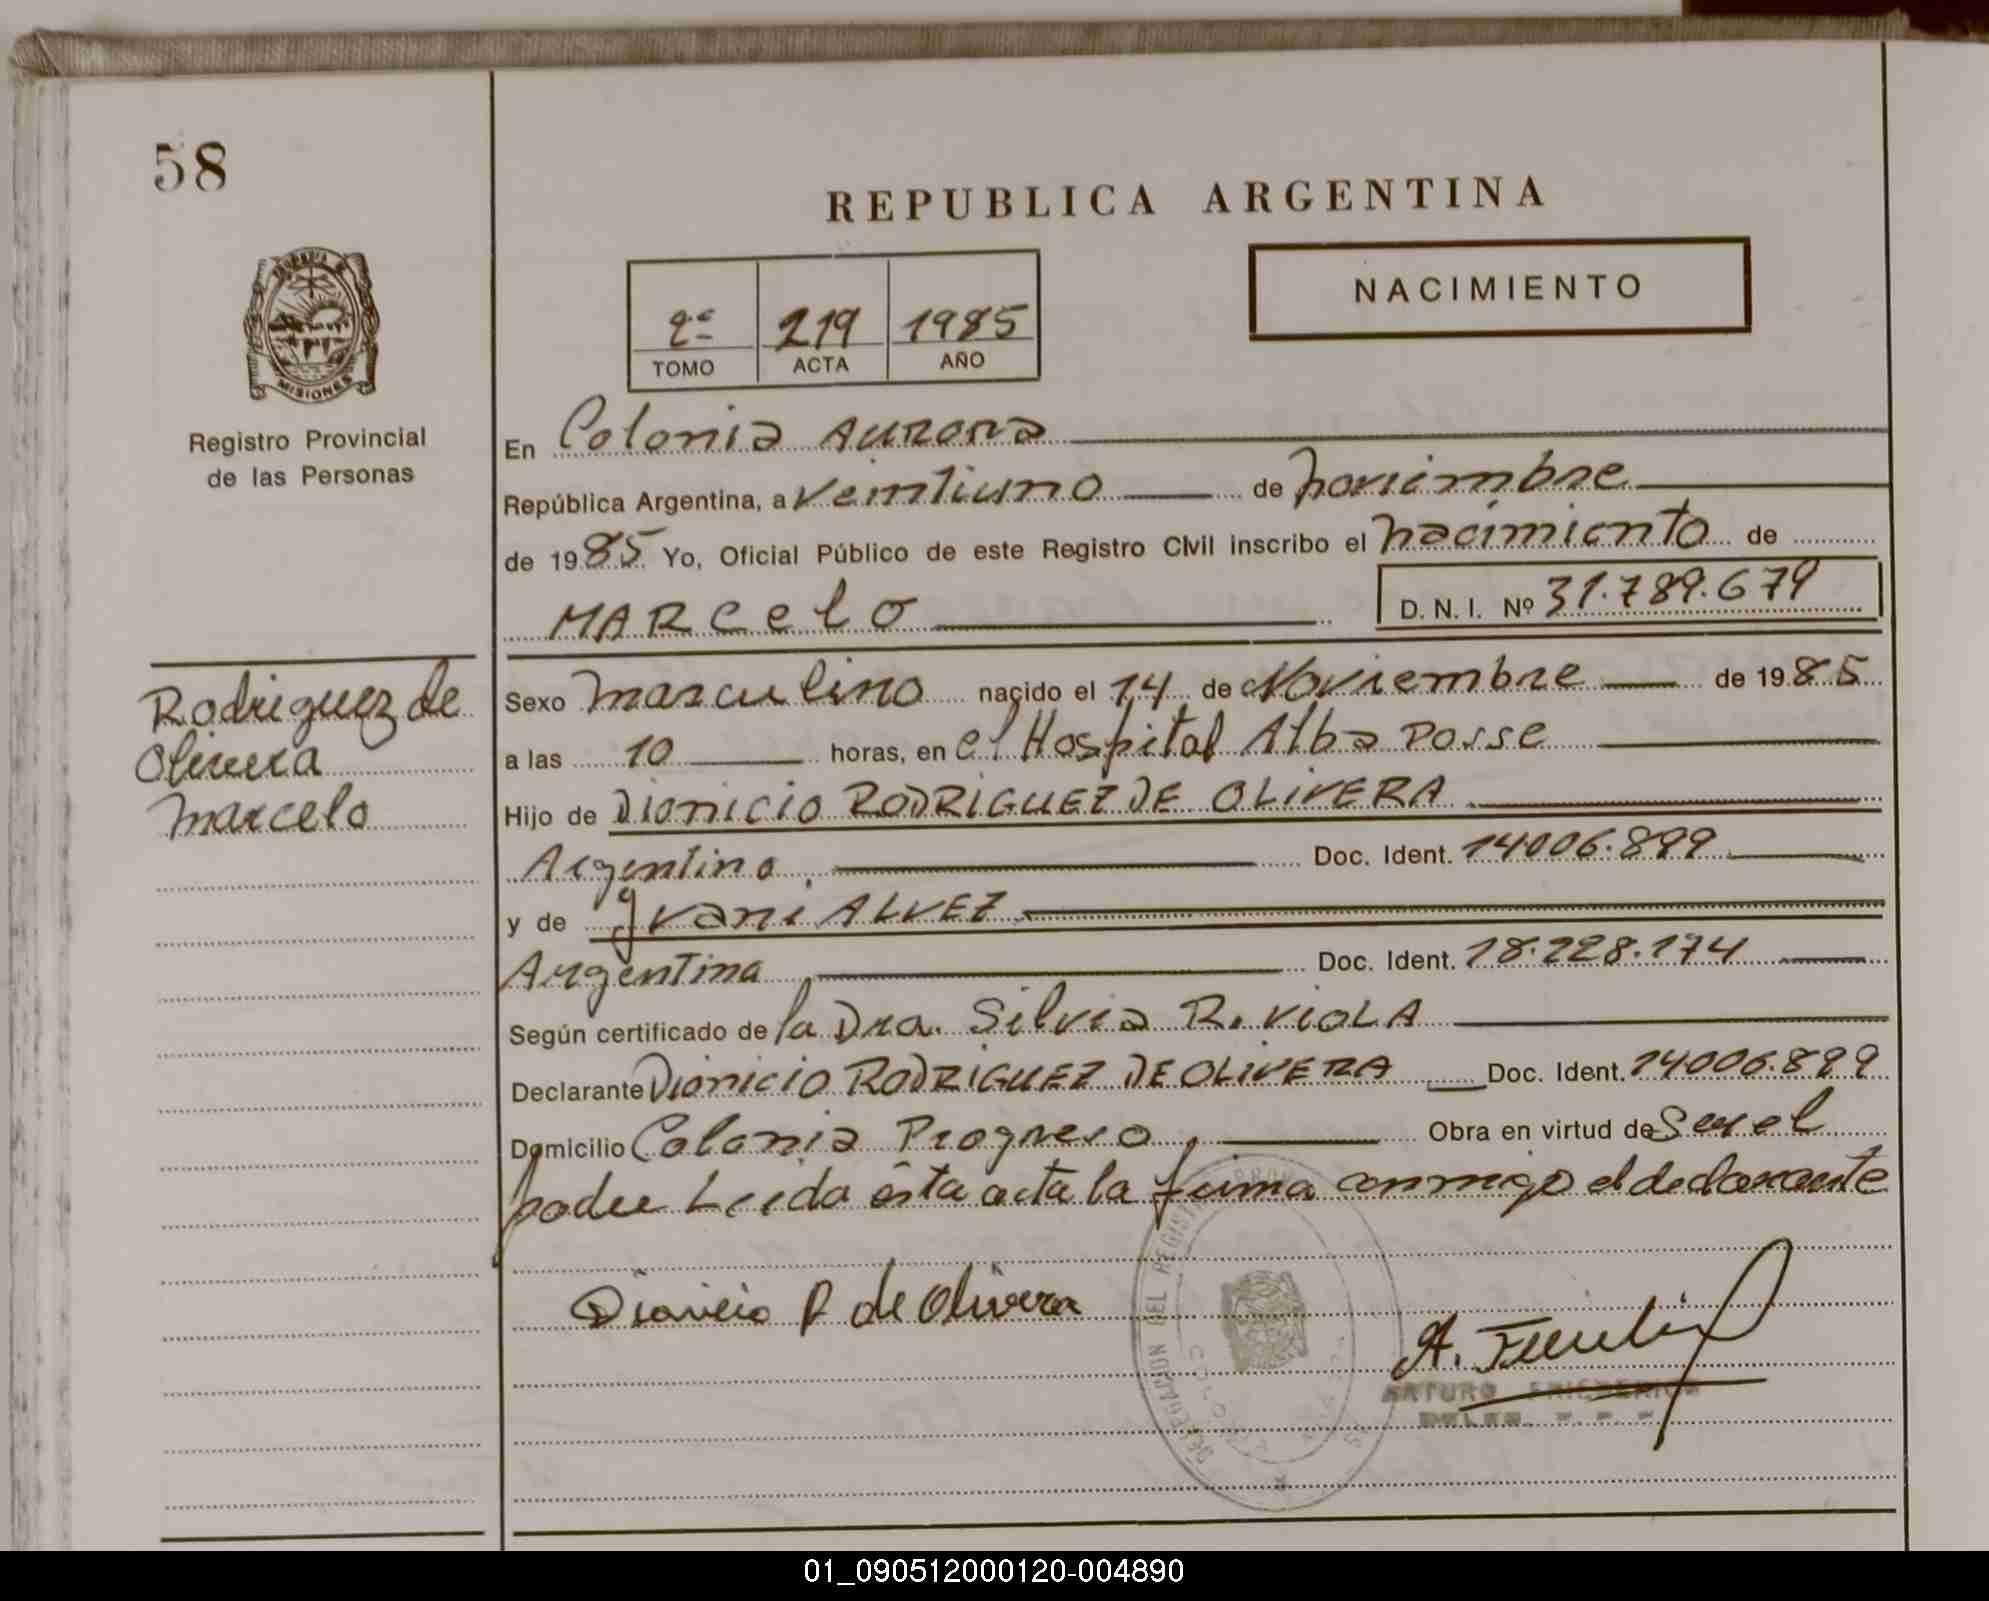 58
REPUBLICA ARGENTINA
NACIMIENTO
2º 219 1985
TOMO ACTA AÑO
MISIONES
Registro Provincial
de las Personas
En Colonia Aurora
República Argentina, a veintiuno de noviembre
de 1985. Yo, Oficial Público de este Registro Civil inscribo el nacimiento de
MARCelO D. N. I. Nº 31.789.679
Rodriguez de
Olivera
Marcelo
Sexo masculino nacido el 14 de Noviembre de 1985
a las 10 horas, en el Hospital Alba Posse
Hijo de DIONICIO RODRIGUEZ DE OLIVERA
Argentino. Doc. Ident. 14006.899
y de Yvani ALVEZ
Argentina Doc. Ident. 18.228.174
Según certificado de la Dra. Silvia R. VIOLA
Declarante Dionicio RODRIGUEZ DE OLIVERA Doc. Ident. 14006.899
Domicilio Colonia Progreso Obra en virtud de Ser el
padre Leida ésta acta la firma conmigo el declarante
Dionicio R de Olivera
DELEGACION DEL REGISTRO
A.
ARTURO
01_090512000120-004890